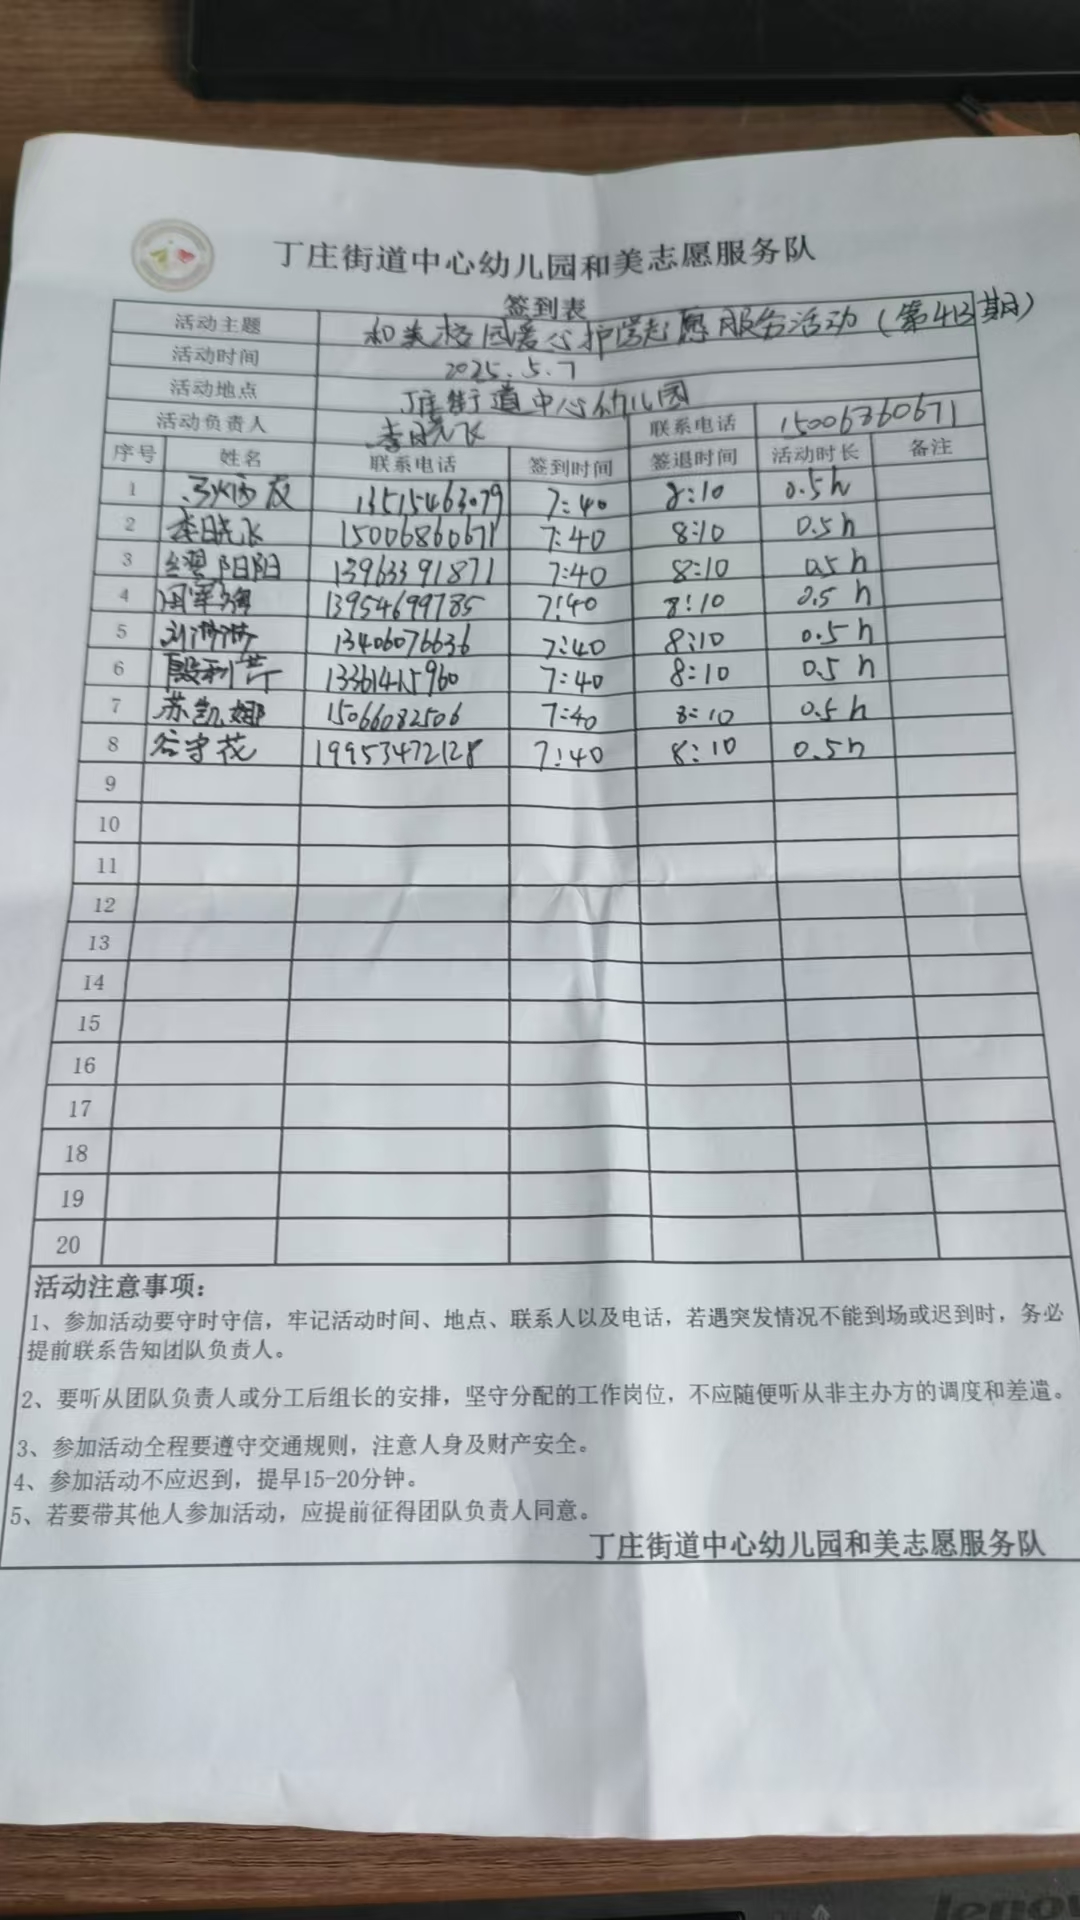 丁庄街道中心幼儿园和美志愿服务队
签到表
活动主题 和美校园爱心护学志愿服务活动（第43期）
活动时间 2025.5.7
活动地点 丁庄街道中心幼儿园
活动负责人 李晓飞 联系电话 15006860671
序号 姓名 联系电话 签到时间 签退时间 活动时长 备注
1 13515463079 7:40 8:10 0.5h
2 李晓飞 15006860671 7:40 8:10 0.5h
3 缪阳阳 13963391871 7:40 8:10 0.5h
4 13954699785 7:40 8:10 0.5h
5 13406076636 7:40 8:10 0.5h
6 殷利芹 13361415960 7:40 8:10 0.5h
7 苏凯娜 15066082506 7:40 8:10 0.5h
8 谷守花 19953472128 7:40 8:10 0.5h
9
10
11
12
13
14
15
16
17
18
19
20
活动注意事项：
1、参加活动要守时守信，牢记活动时间、地点、联系人以及电话，若遇突发情况不能到场或迟到时，务必
提前联系告知团队负责人。
2、要听从团队负责人或分工后组长的安排，坚守分配的工作岗位，不应随便听从非主办方的调度和差遣。
3、参加活动全程要遵守交通规则，注意人身及财产安全。
4、参加活动不应迟到，提早15-20分钟。
5、若要带其他人参加活动，应提前征得团队负责人同意。
丁庄街道中心幼儿园和美志愿服务队
lenovo